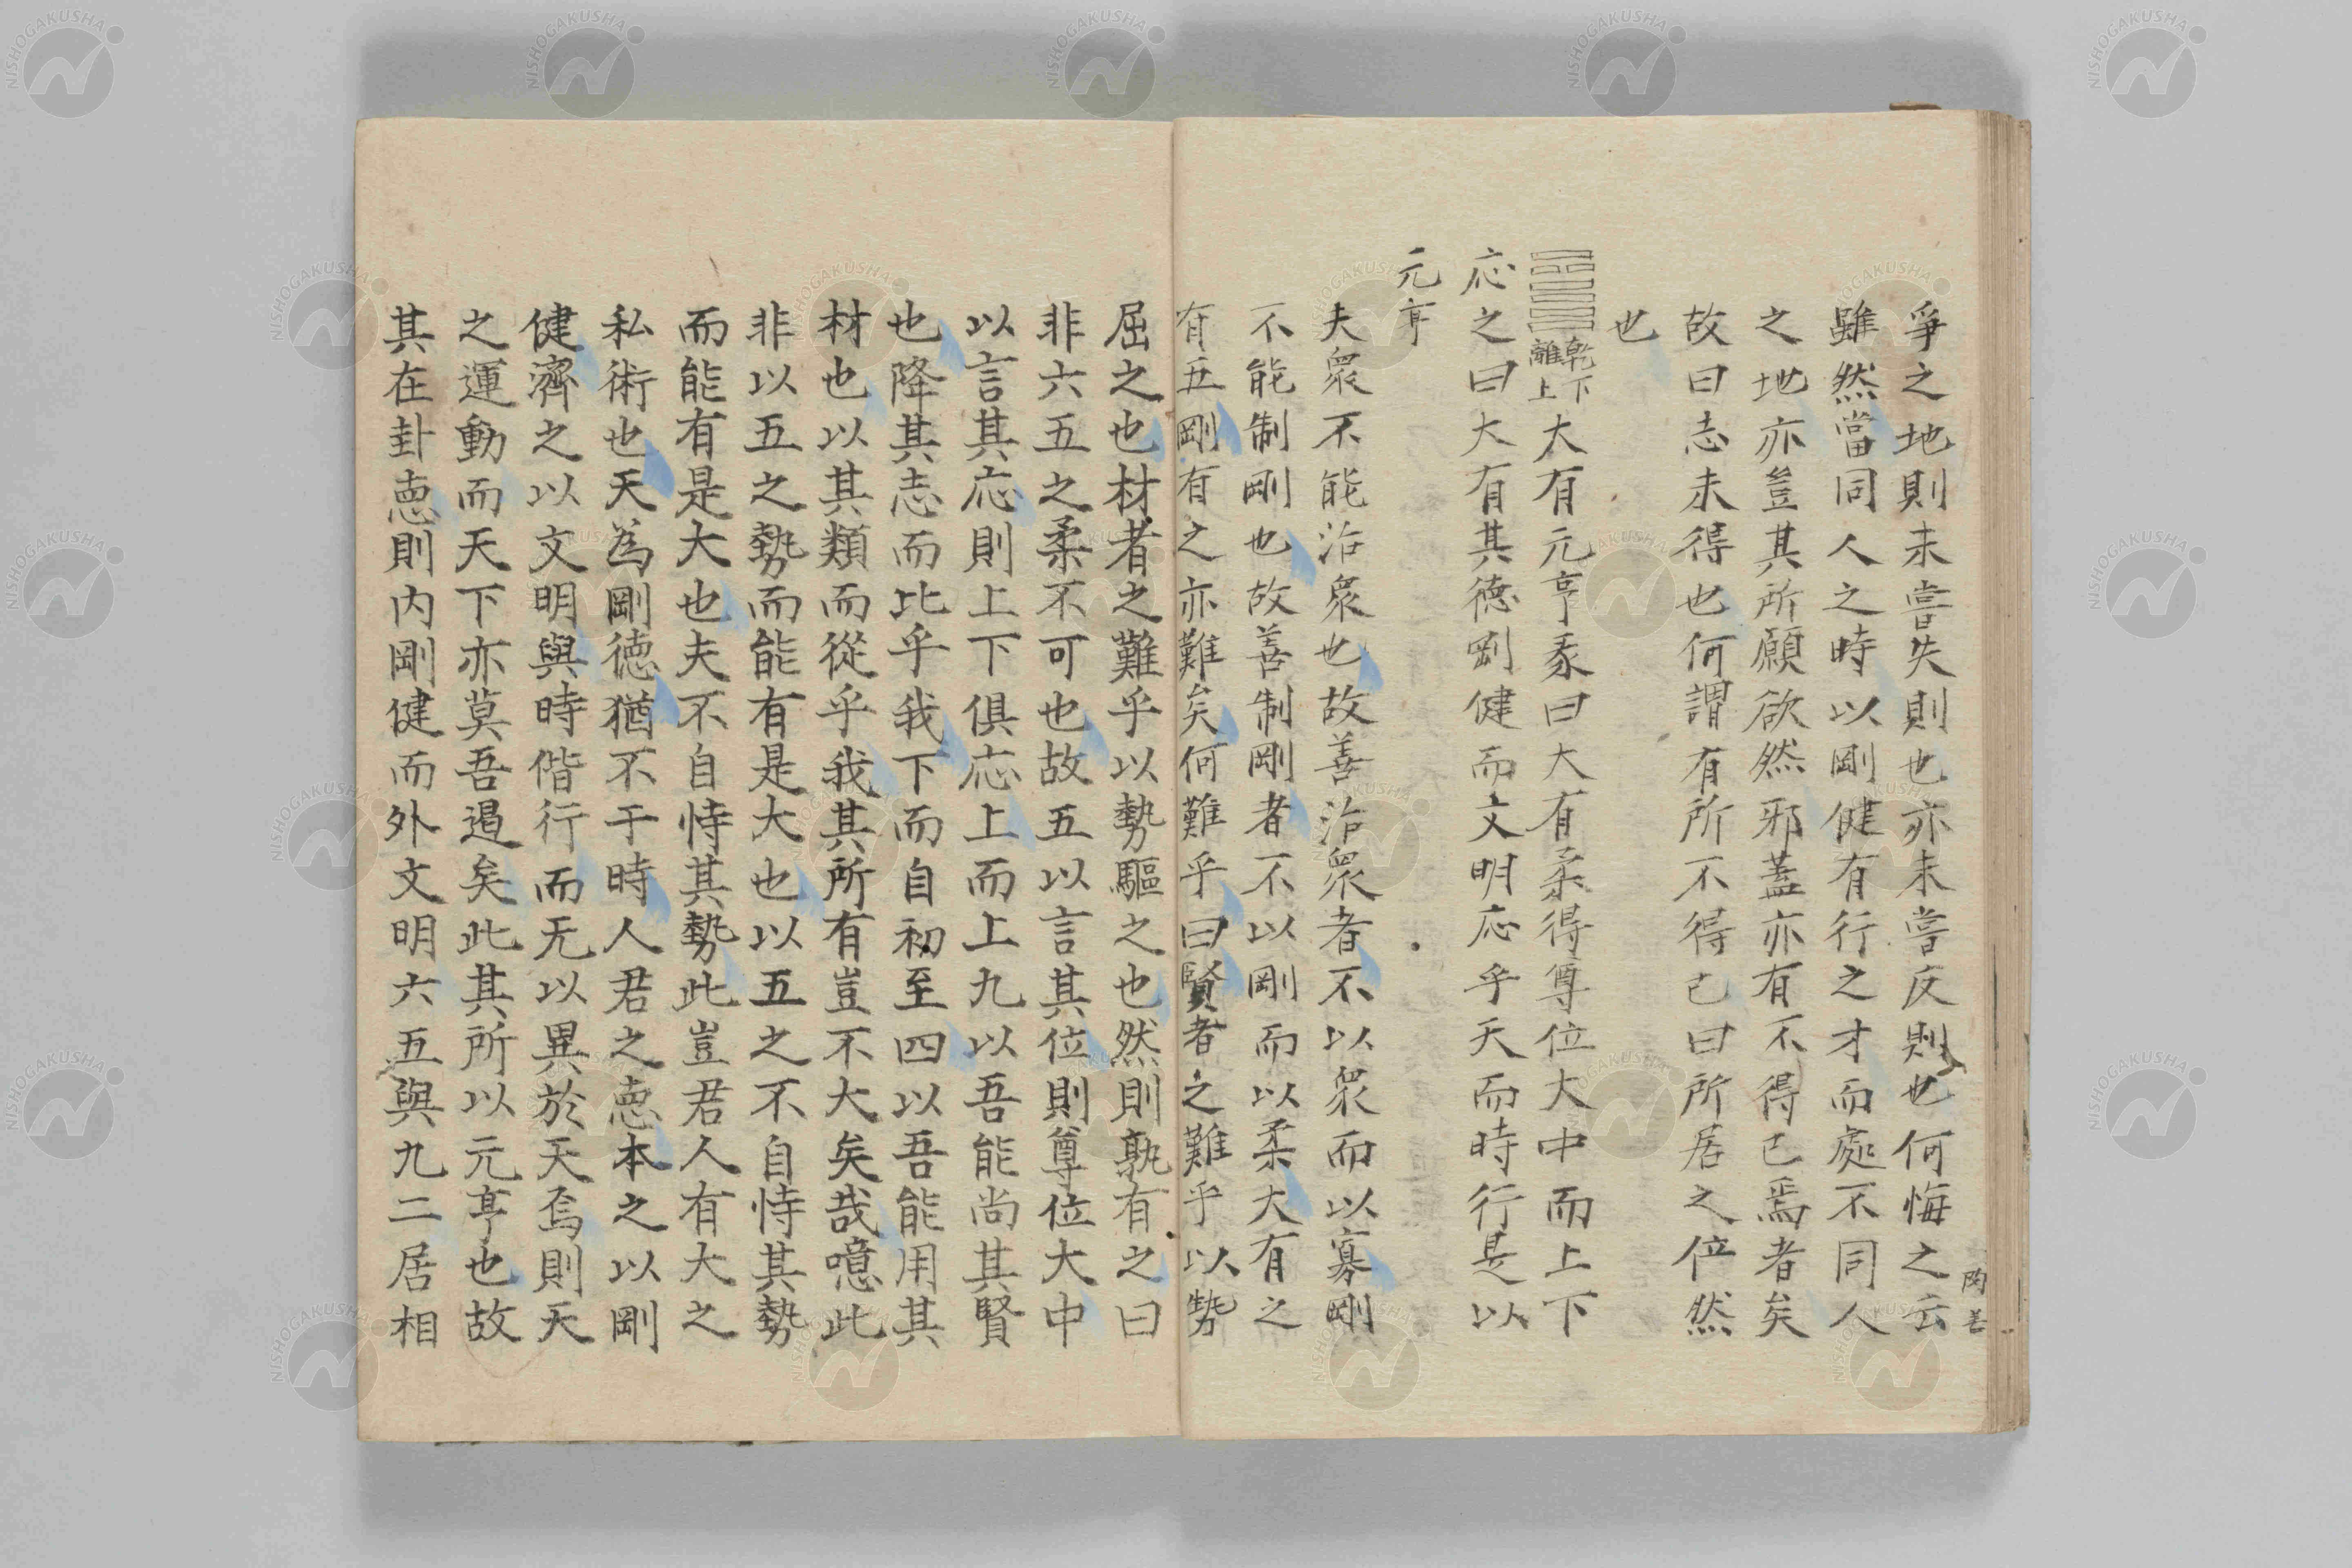 爭之地則未嘗失則也亦未嘗反則也何悔之云
雖然當同人之時以剛健有行之才而處不同人
之地亦豈其所願欲然邪蓋亦有不得已焉者矣
故曰志未得也何謂有所不得已曰所居之位然
也
乾下離上大有元亨彖曰大有柔得尊位大中而上下
応之曰大有其徳剛健而文明応乎天而時行是以
元亨
夫衆不能治衆也故善治衆者不以衆而以寡剛
不能制剛也故善制剛者不以剛而以柔大有之
有五剛有之亦難矣何難乎曰賢者之難乎以勢
屈之也材者之難乎以勢驅之也然則孰有之曰
非六五之柔不可也故五以言其位則尊位大中
以言其応則上下俱応上而上九以吾能尚其賢
也降其志而比乎我下而自初至四以吾能用其
材也以其類而從乎我其所有豈不大矣哉噫此
非以五之勢而能有是大也以五之不自恃其勢
而能有是大也夫不自恃其勢此豈君人有大之
私術也天為剛徳猶不干時人君之悳本之以剛
健濟之以文明與時偕行而无以異於天焉則天
之運動而天下亦莫吾遏矣此其所以元亨也故
其在卦悳則内剛健而外文明六五與九二居相
NISHOGAKUSHA